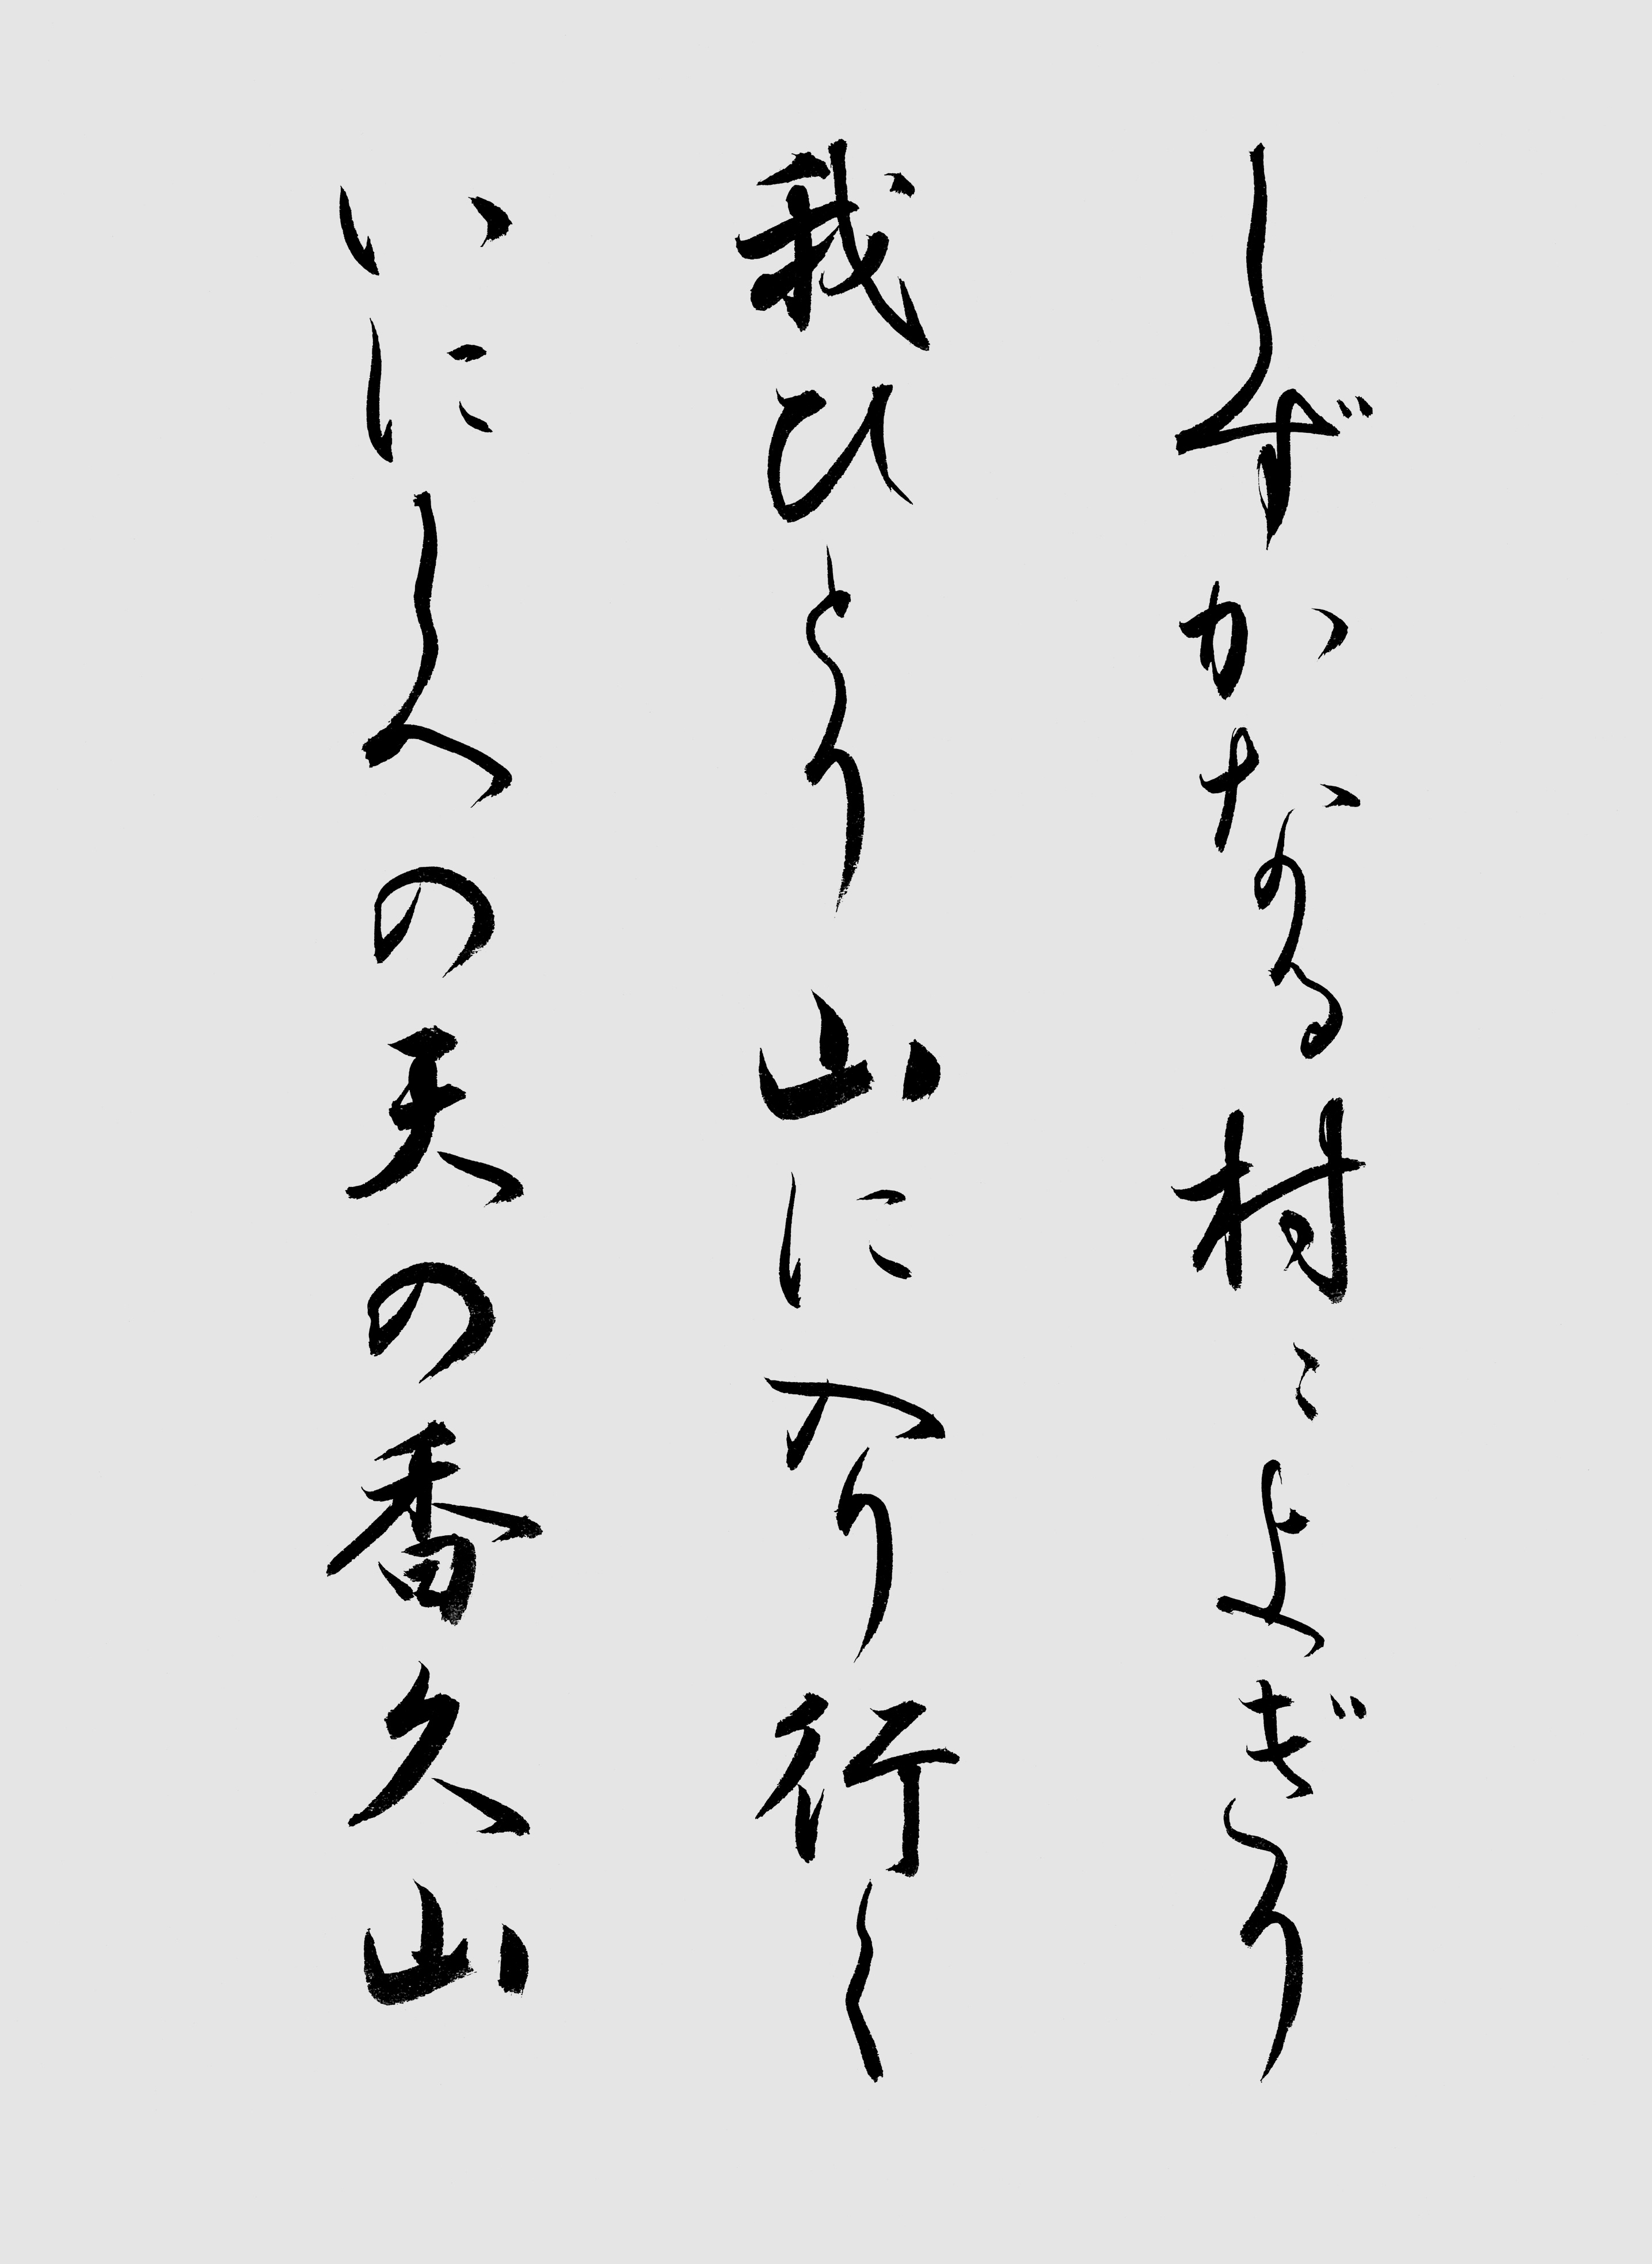 しずかなる村こよぎり
我ひとり山に入り行く
いにしへの天の香久山